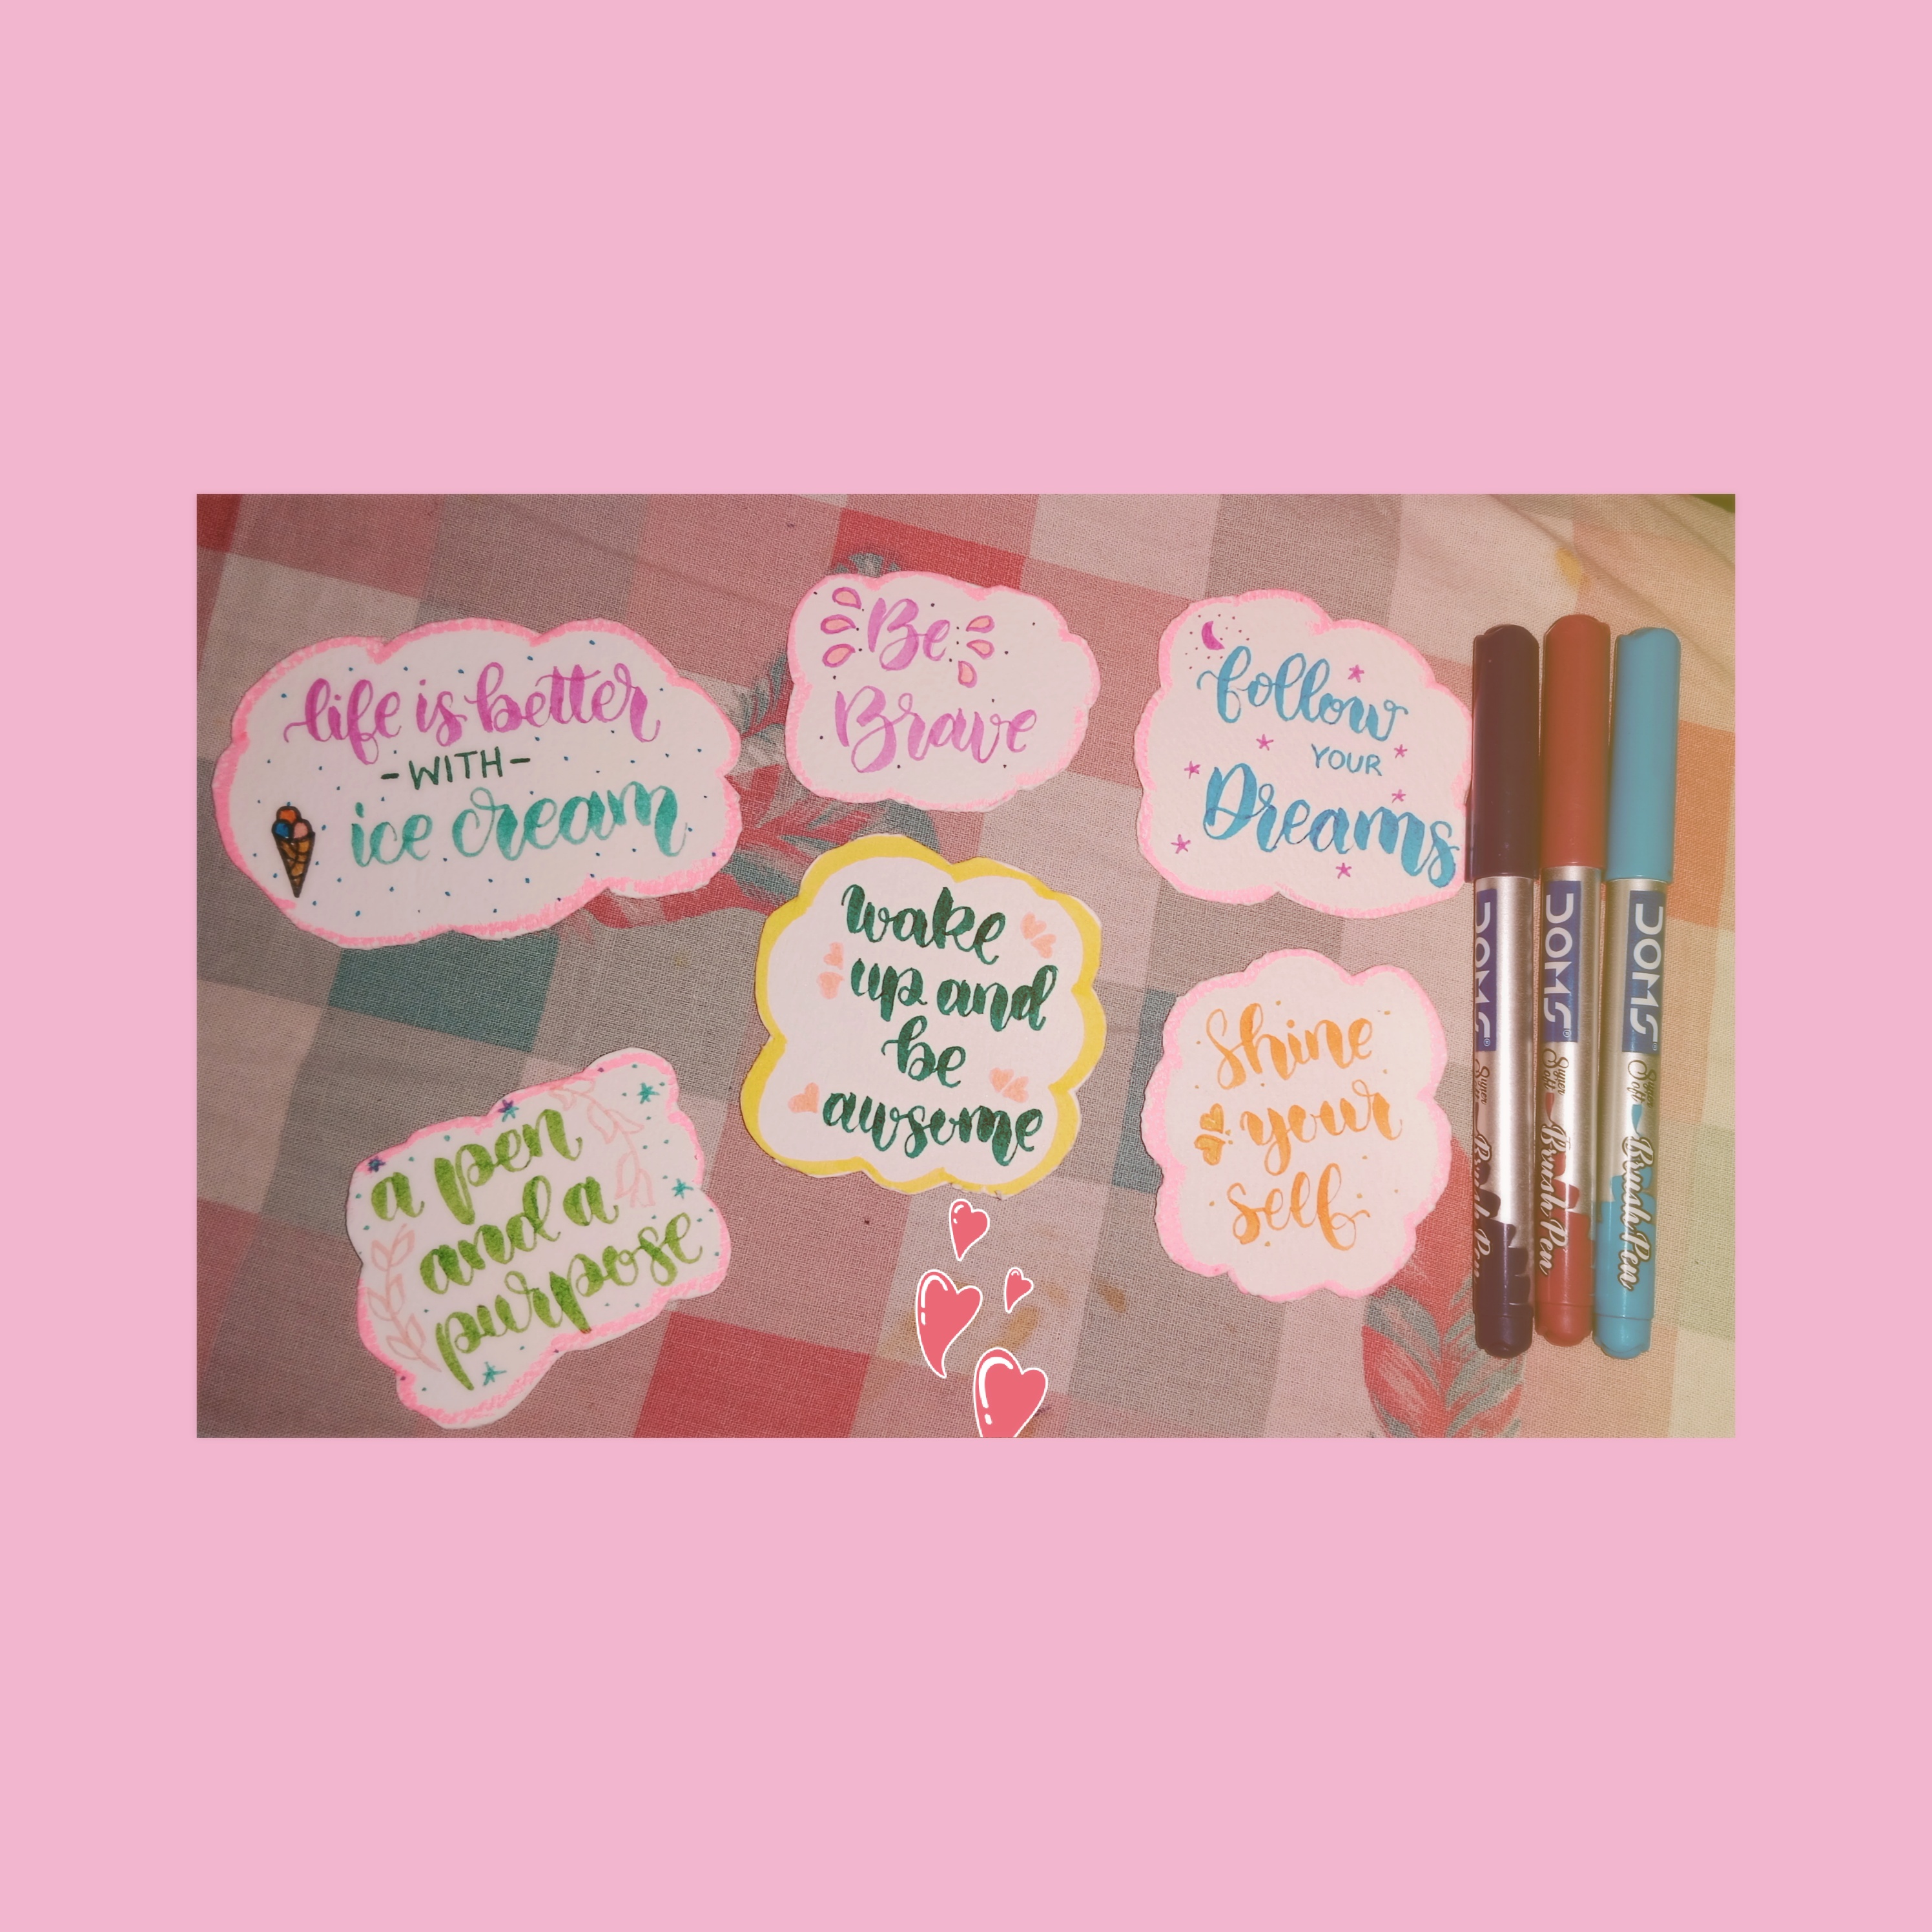 life is better
-WITH-
ice cream
Be
Brave
follow
YOUR
Dreams
wake
up and
be
awsome
a pen
and a
purpose
Shine
your
self
DOMS
Super
Soft
Brush Pen
DOMS
Super
Soft
Brush Pen
DOMS
Super
Soft
Brush Pen